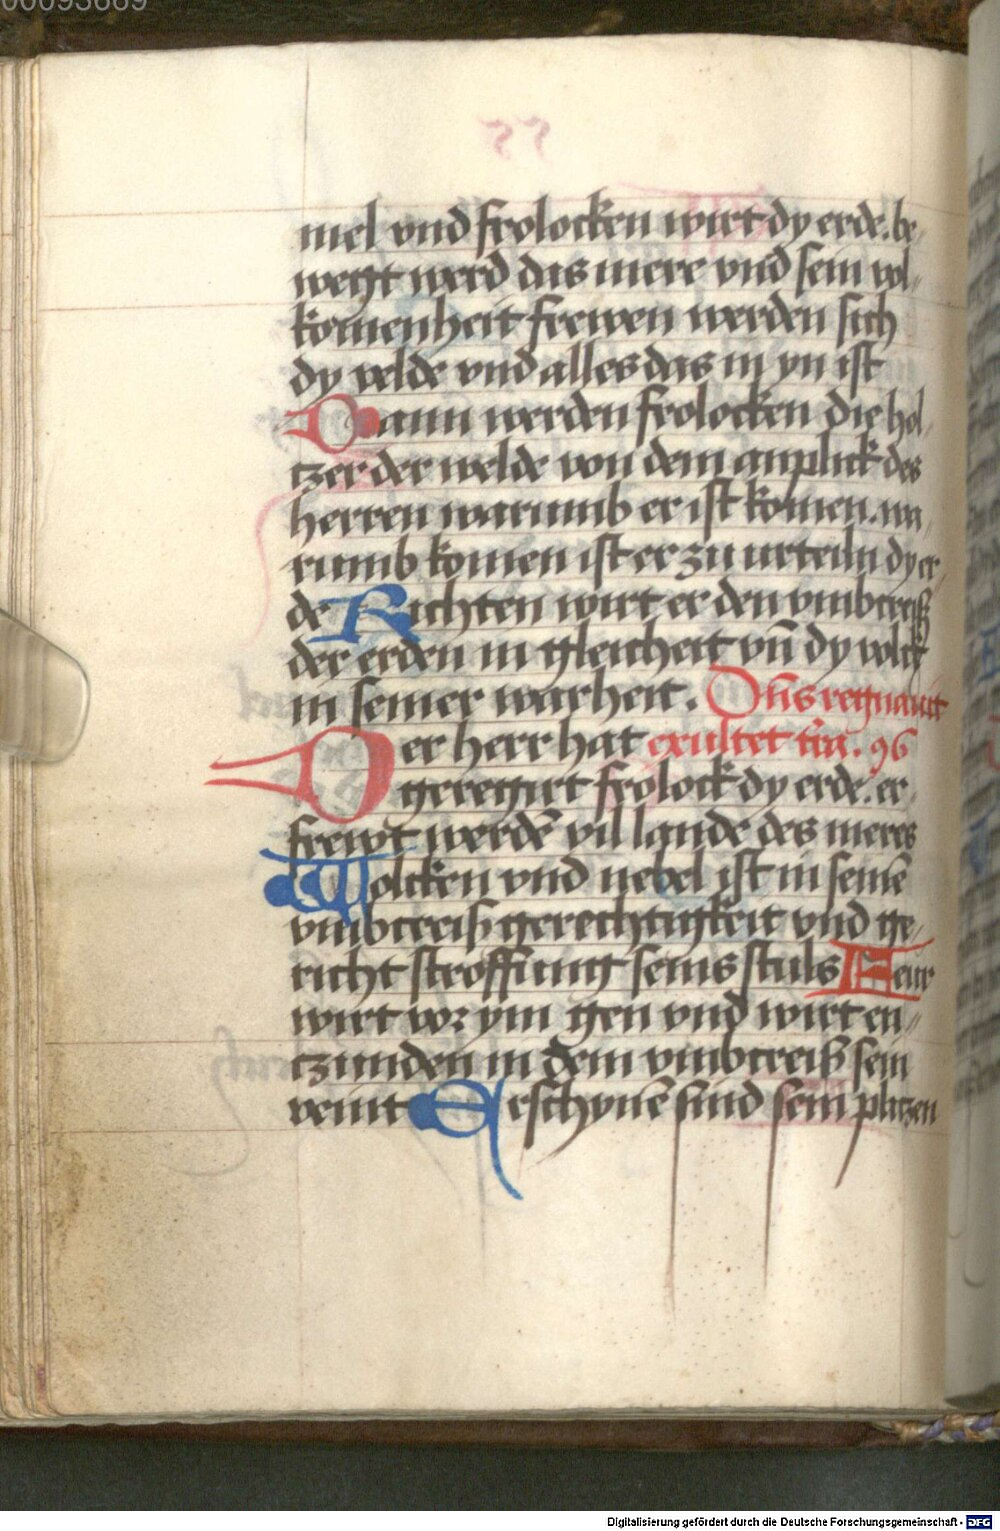 00093669
mel vnd frolocken wirt dy erde. be„
wegt werd das mere vnd sein vol„
komenheit frewen werden sich
dy velde vnd alles das in yn ist
Dann werden frolocken die hol„
tzer der welde von dem anplick des
herren warumb er ist komen. wa„
rumb komen ist er zu urteiln dy er„
de Richten wirt er den vmbcreiß
der erden in gleicheit vn̄ dy volck
in seiner warheit. Dn̄s regnauit
Der herr hat exultet tr̄a. 96
geregirt frolock dy erde. er„
frewt werdē vil lande des meres
Wolcken vnd nebel ist in seinē
vmbcreiß gerechtigkeit vnd ge„
richt stroffung seins stuls Feur
wirt vor ym gen vnd wirt en„
tzunden in dem vmbcreiß sein
veint Erschynē sind sein plitzen
Digitalisierung gefördert durch die Deutsche Forschungsgemeinschaft - DFG